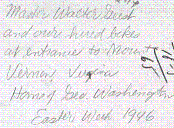 Master Walter Guest
and our hired bike
at entrance to Mount
Vernon, Virginia
Home of Geo Washington
Easter Week 1946